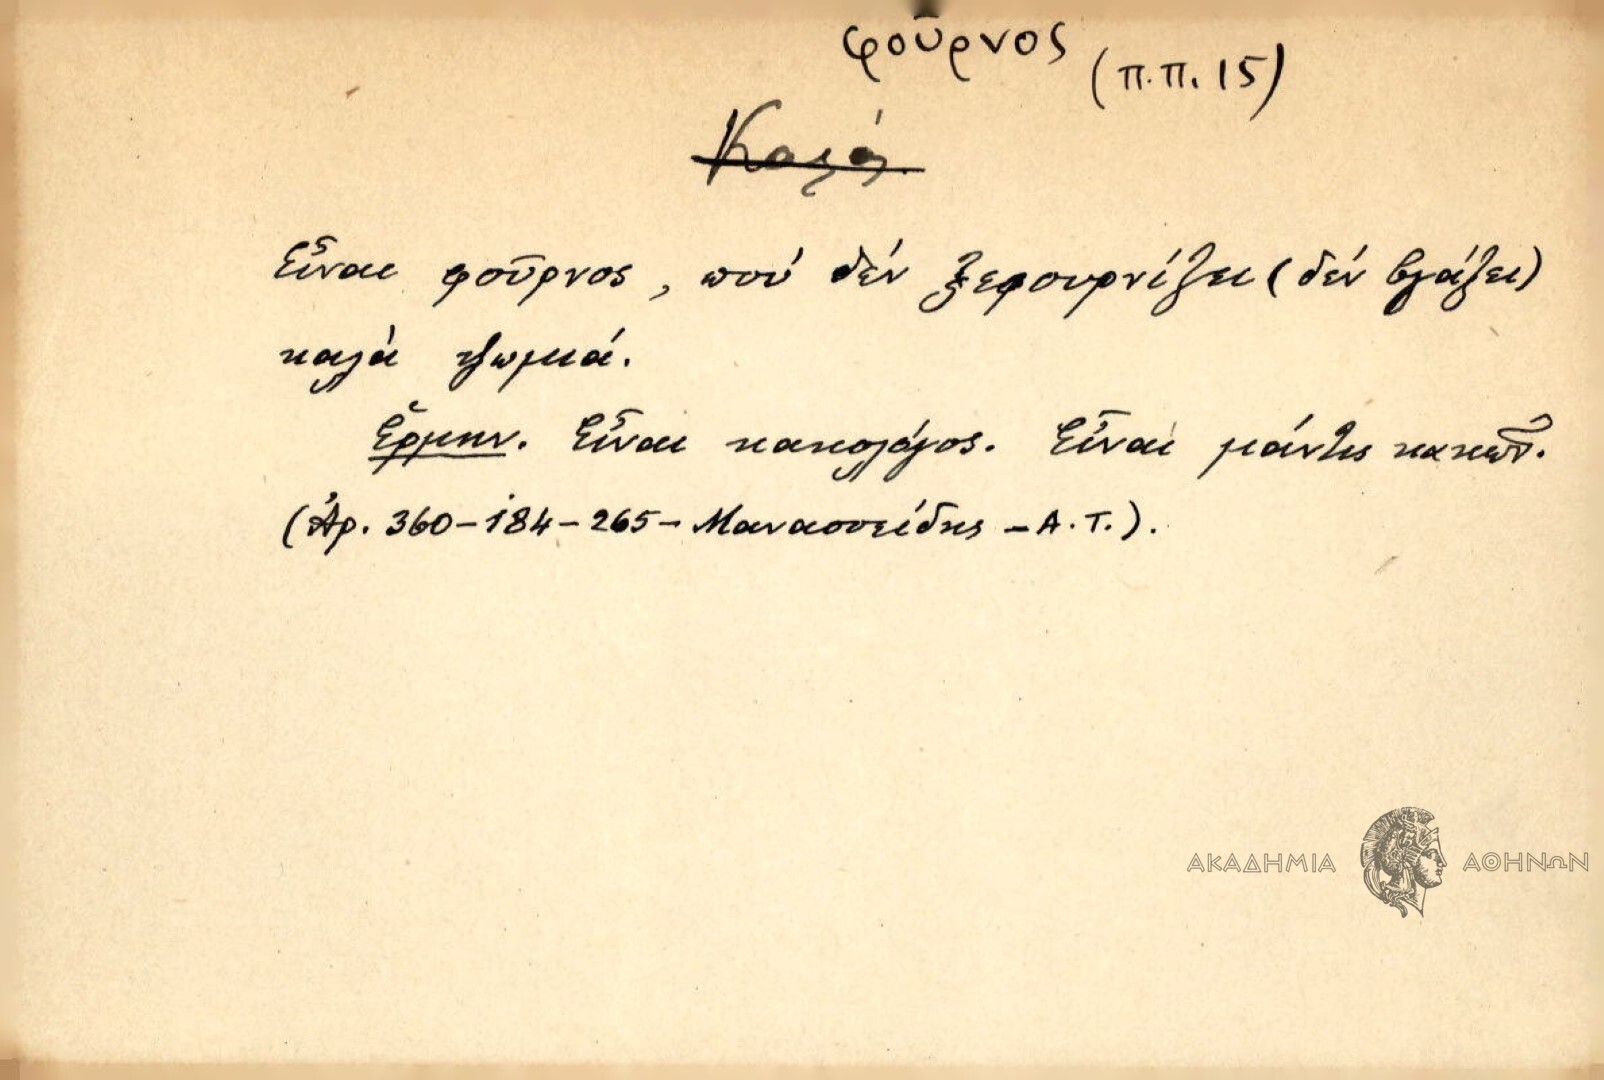 φοῦρνος (π.π. 15)
Καλά
Εἶναι φοῦρνος, πού δέν ξεφουρνίζει (δέν βγάζει)
καλά ψωμιά.
Ἑρμην. Εἶναι κακολόγος. Εἶναι μάντις κακῶν.
(Ἀρ. 360-184-265- Μανασσείδης - Α.Τ.).
ΑΚΑΔΗΜΙΑ ΑΘΗΝΩΝ